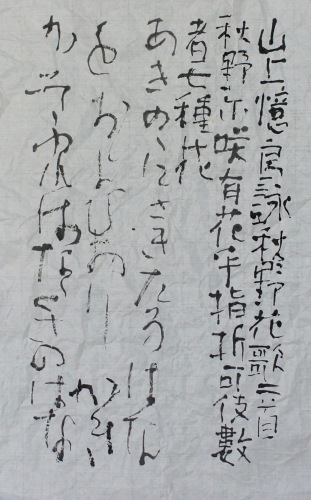 山上憶良詠秋野花歌二首
秋野尓咲有花乎指折可伎數
者七種花
あきのゝにさきたるはな
をおよびおりかき
かぞふればなゝくさのはな